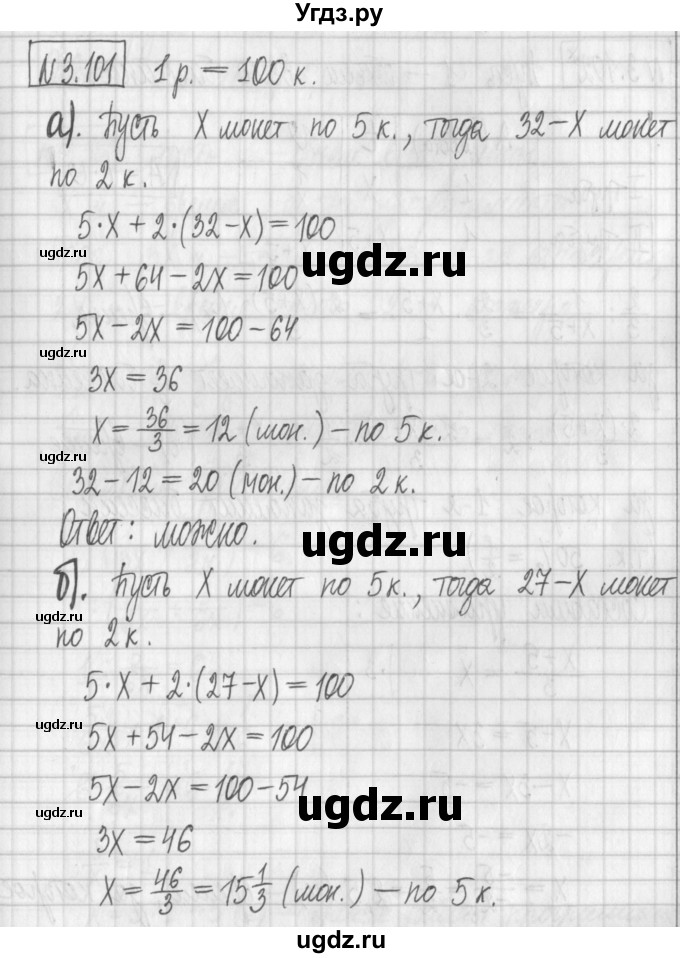 Угдз.ру
N 3.101 1 р. = 100 к.
а). Пусть x монет по 5 к., тогда 32 - x монет
по 2 к.
5·x + 2·(32 - x) = 100
ugdz.ru
ugdz.ru
5x + 64 - 2x = 100
5x - 2x = 100 - 64
ugdz.ru
3x = 36
x = 36/3 = 12 (мон.) - по 5 к.
ugdz.ru
32 - 12 = 20 (мон.) - по 2 к.
Ответ: можно.
ugdz.ru
ugdz.ru
б). Пусть x монет по 5 к., тогда 27 - x монет
ugdz.ru
по 2 к.
5·x + 2·(27 - x) = 100
ugdz.ru
5x + 54 - 2x = 100
5x - 2x = 100 - 54
ugdz.ru
3x = 46
ugdz.ru
x = 46/3 = 15 1/3 (мон.) - по 5 к.
ugdz.ru